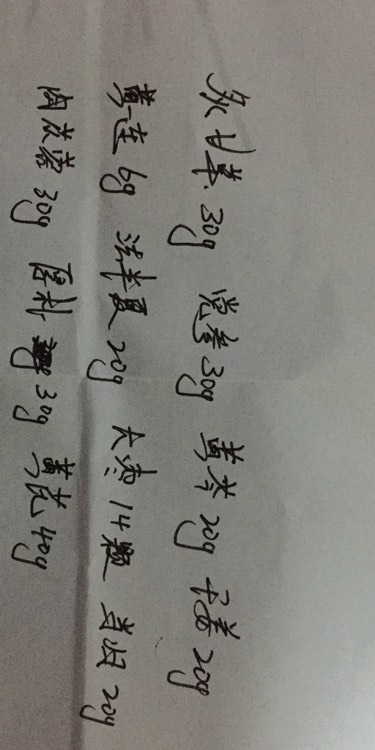 炙甘草30g 党参30g 黄芩20g 干姜20g
黄连6g 法半夏20g 大枣14颗 当归20g
肉苁蓉30g 厚朴30g 黄芪40g